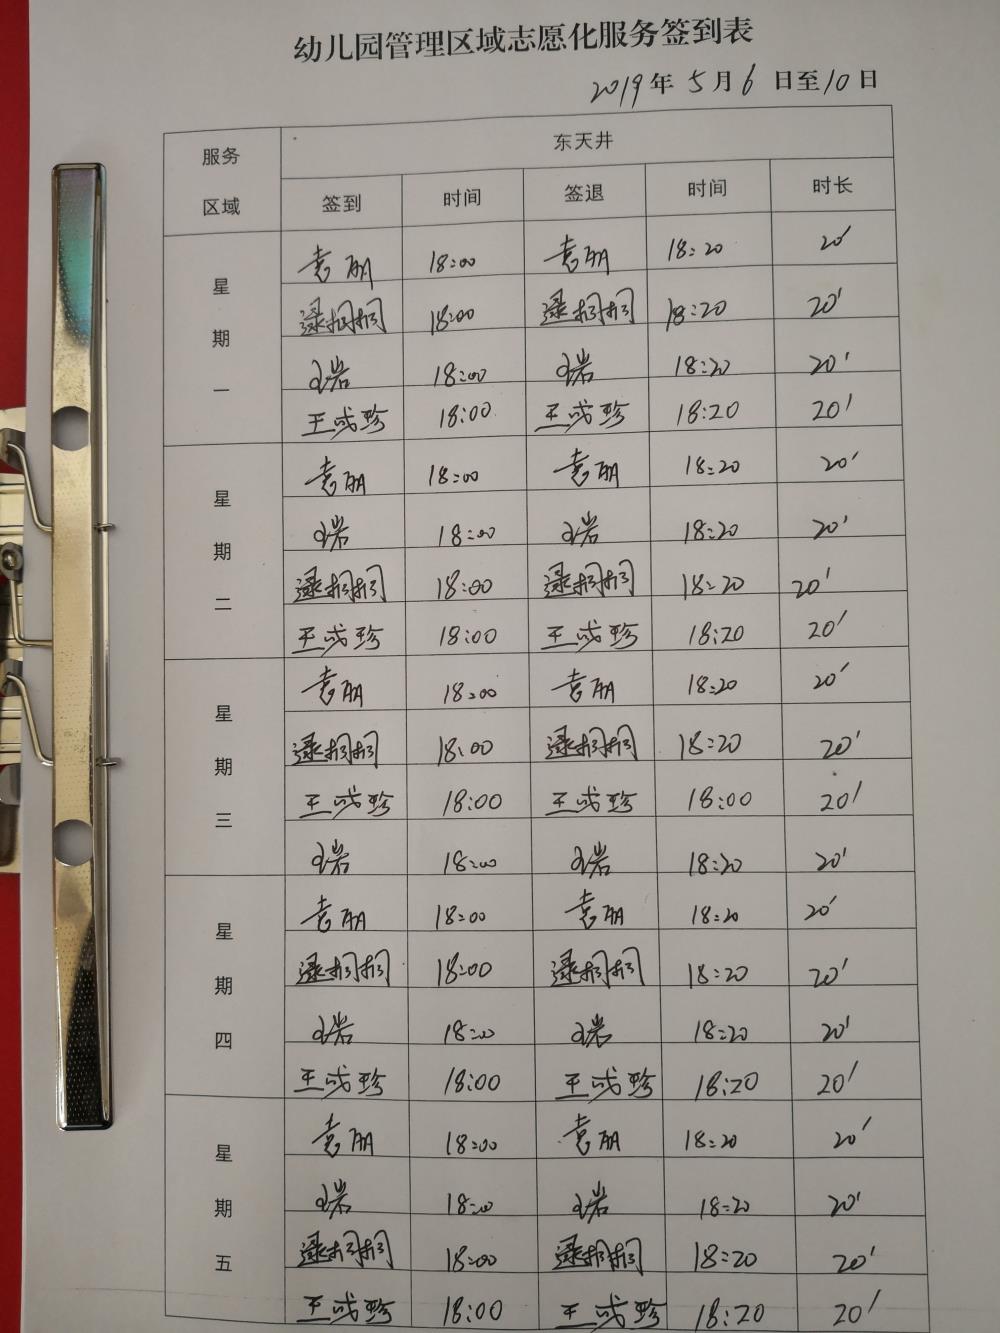 幼儿园管理区域志愿化服务签到表
2019年5月6日至10日
服务区域 东天井
签到 时间 签退 时间 时长
星期一
袁丽 18:00 袁丽 18:20 20'
逯桐桐 18:00 逯桐桐 18:20 20'
岩 18:00 岩 18:20 20'
王彧珍 18:00 王彧珍 18:20 20'
星期二
袁丽 18:00 袁丽 18:20 20'
岩 18:00 岩 18:20 20'
逯桐桐 18:00 逯桐桐 18:20 20'
王彧珍 18:00 王彧珍 18:20 20'
星期三
袁丽 18:00 袁丽 18:20 20'
逯桐桐 18:00 逯桐桐 18:20 20'
王彧珍 18:00 王彧珍 18:00 20'
岩 18:00 岩 18:20 20'
星期四
袁丽 18:00 袁丽 18:20 20'
逯桐桐 18:00 逯桐桐 18:20 20'
岩 18:00 岩 18:20 20'
王彧珍 18:00 王彧珍 18:20 20'
星期五
袁丽 18:00 袁丽 18:20 20'
岩 18:00 岩 18:20 20'
逯桐桐 18:00 逯桐桐 18:20 20'
王彧珍 18:00 王彧珍 18:20 20'